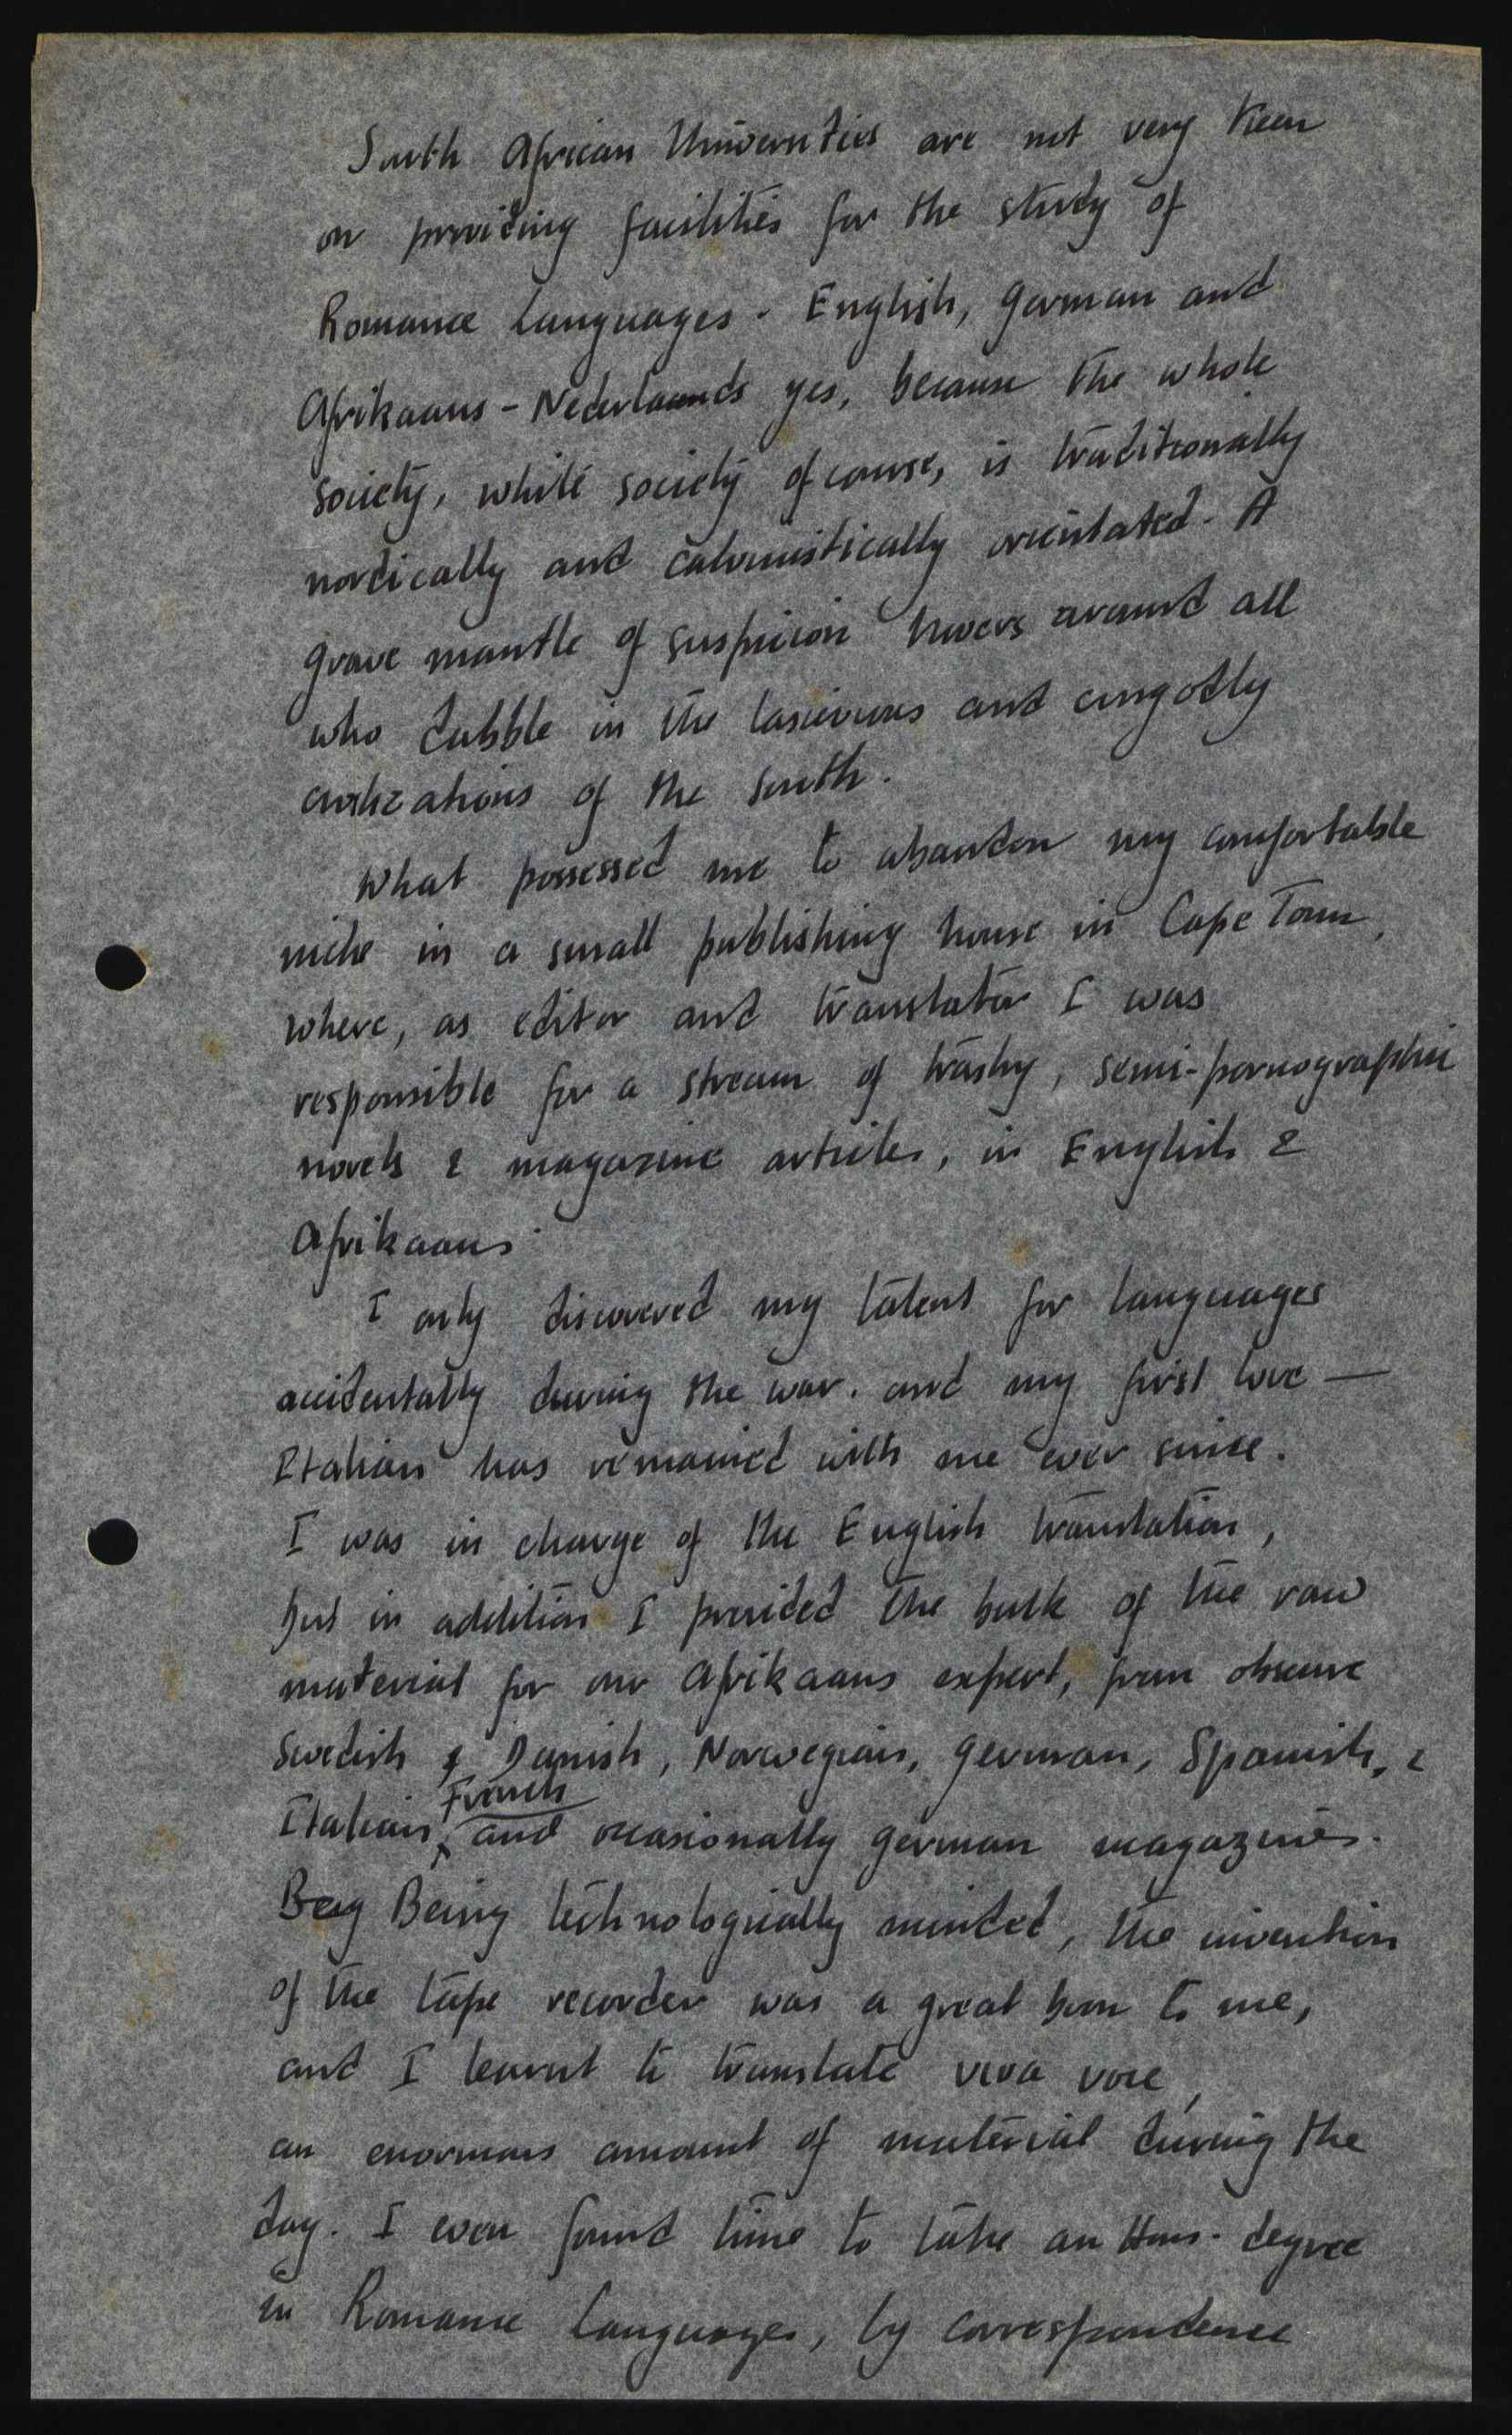 South African Universities are not very keen
on providing facilities for the study of
Romance Languages. English, German and
Afrikaans - Nederlands yes, because the whole
society, white society of course, is traditionally
nordically and calvinistically orientated. A
grave mantle of suspicion hovers around all
who dabble in the lascivious and ungodly
civilizations of the South.
What possessed me to abandon my comfortable
niche in a small publishing house in Cape Town,
where, as editor and translator I was
responsible for a stream of trashy, semi-pornographic
novels & magazine articles, in English &
Afrikaans.
I only discovered my talent for languages
accidentally during the war. and my first love —
Italian has remained with me ever since.
I was in charge of the English translation,
but in addition I provided the bulk of the raw
material for our Afrikaans expert, from obscure
Swedish & Danish, Norwegian, German, Spanish, &
Italian, French and occasionally German magazines.
Beig Being technologically minded, the invention
of the tape recorder was a great boon to me,
and I learnt to translate viva voce,
an enormous amount of material during the
day. I even found time to take an Hons. degree
in Romance Languages, by correspondence